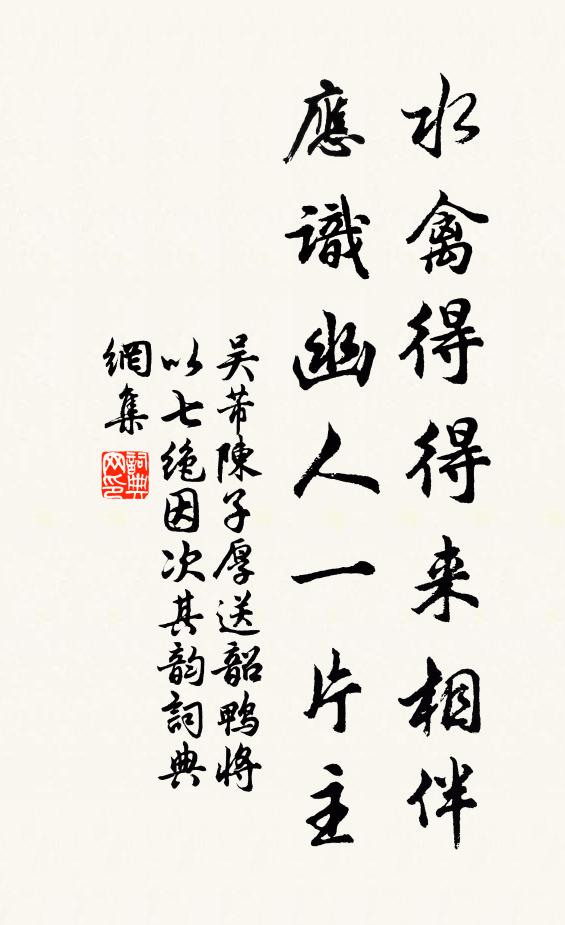 水禽得得来相伴
應識幽人一片主
吴芾陳子厚送韶鴨將
以七绝因次其韵詞典
網集
詞典
网印